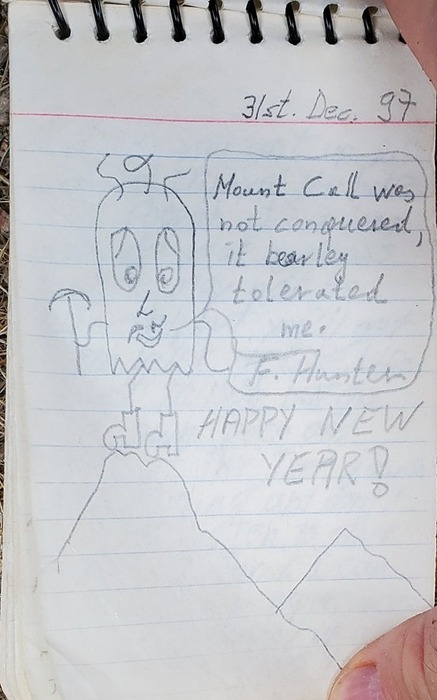 31st. Dec. 97
Mount Cell was
not conquered,
it bearley
tolerated
me.
F. Hunter
HAPPY NEW
YEAR!